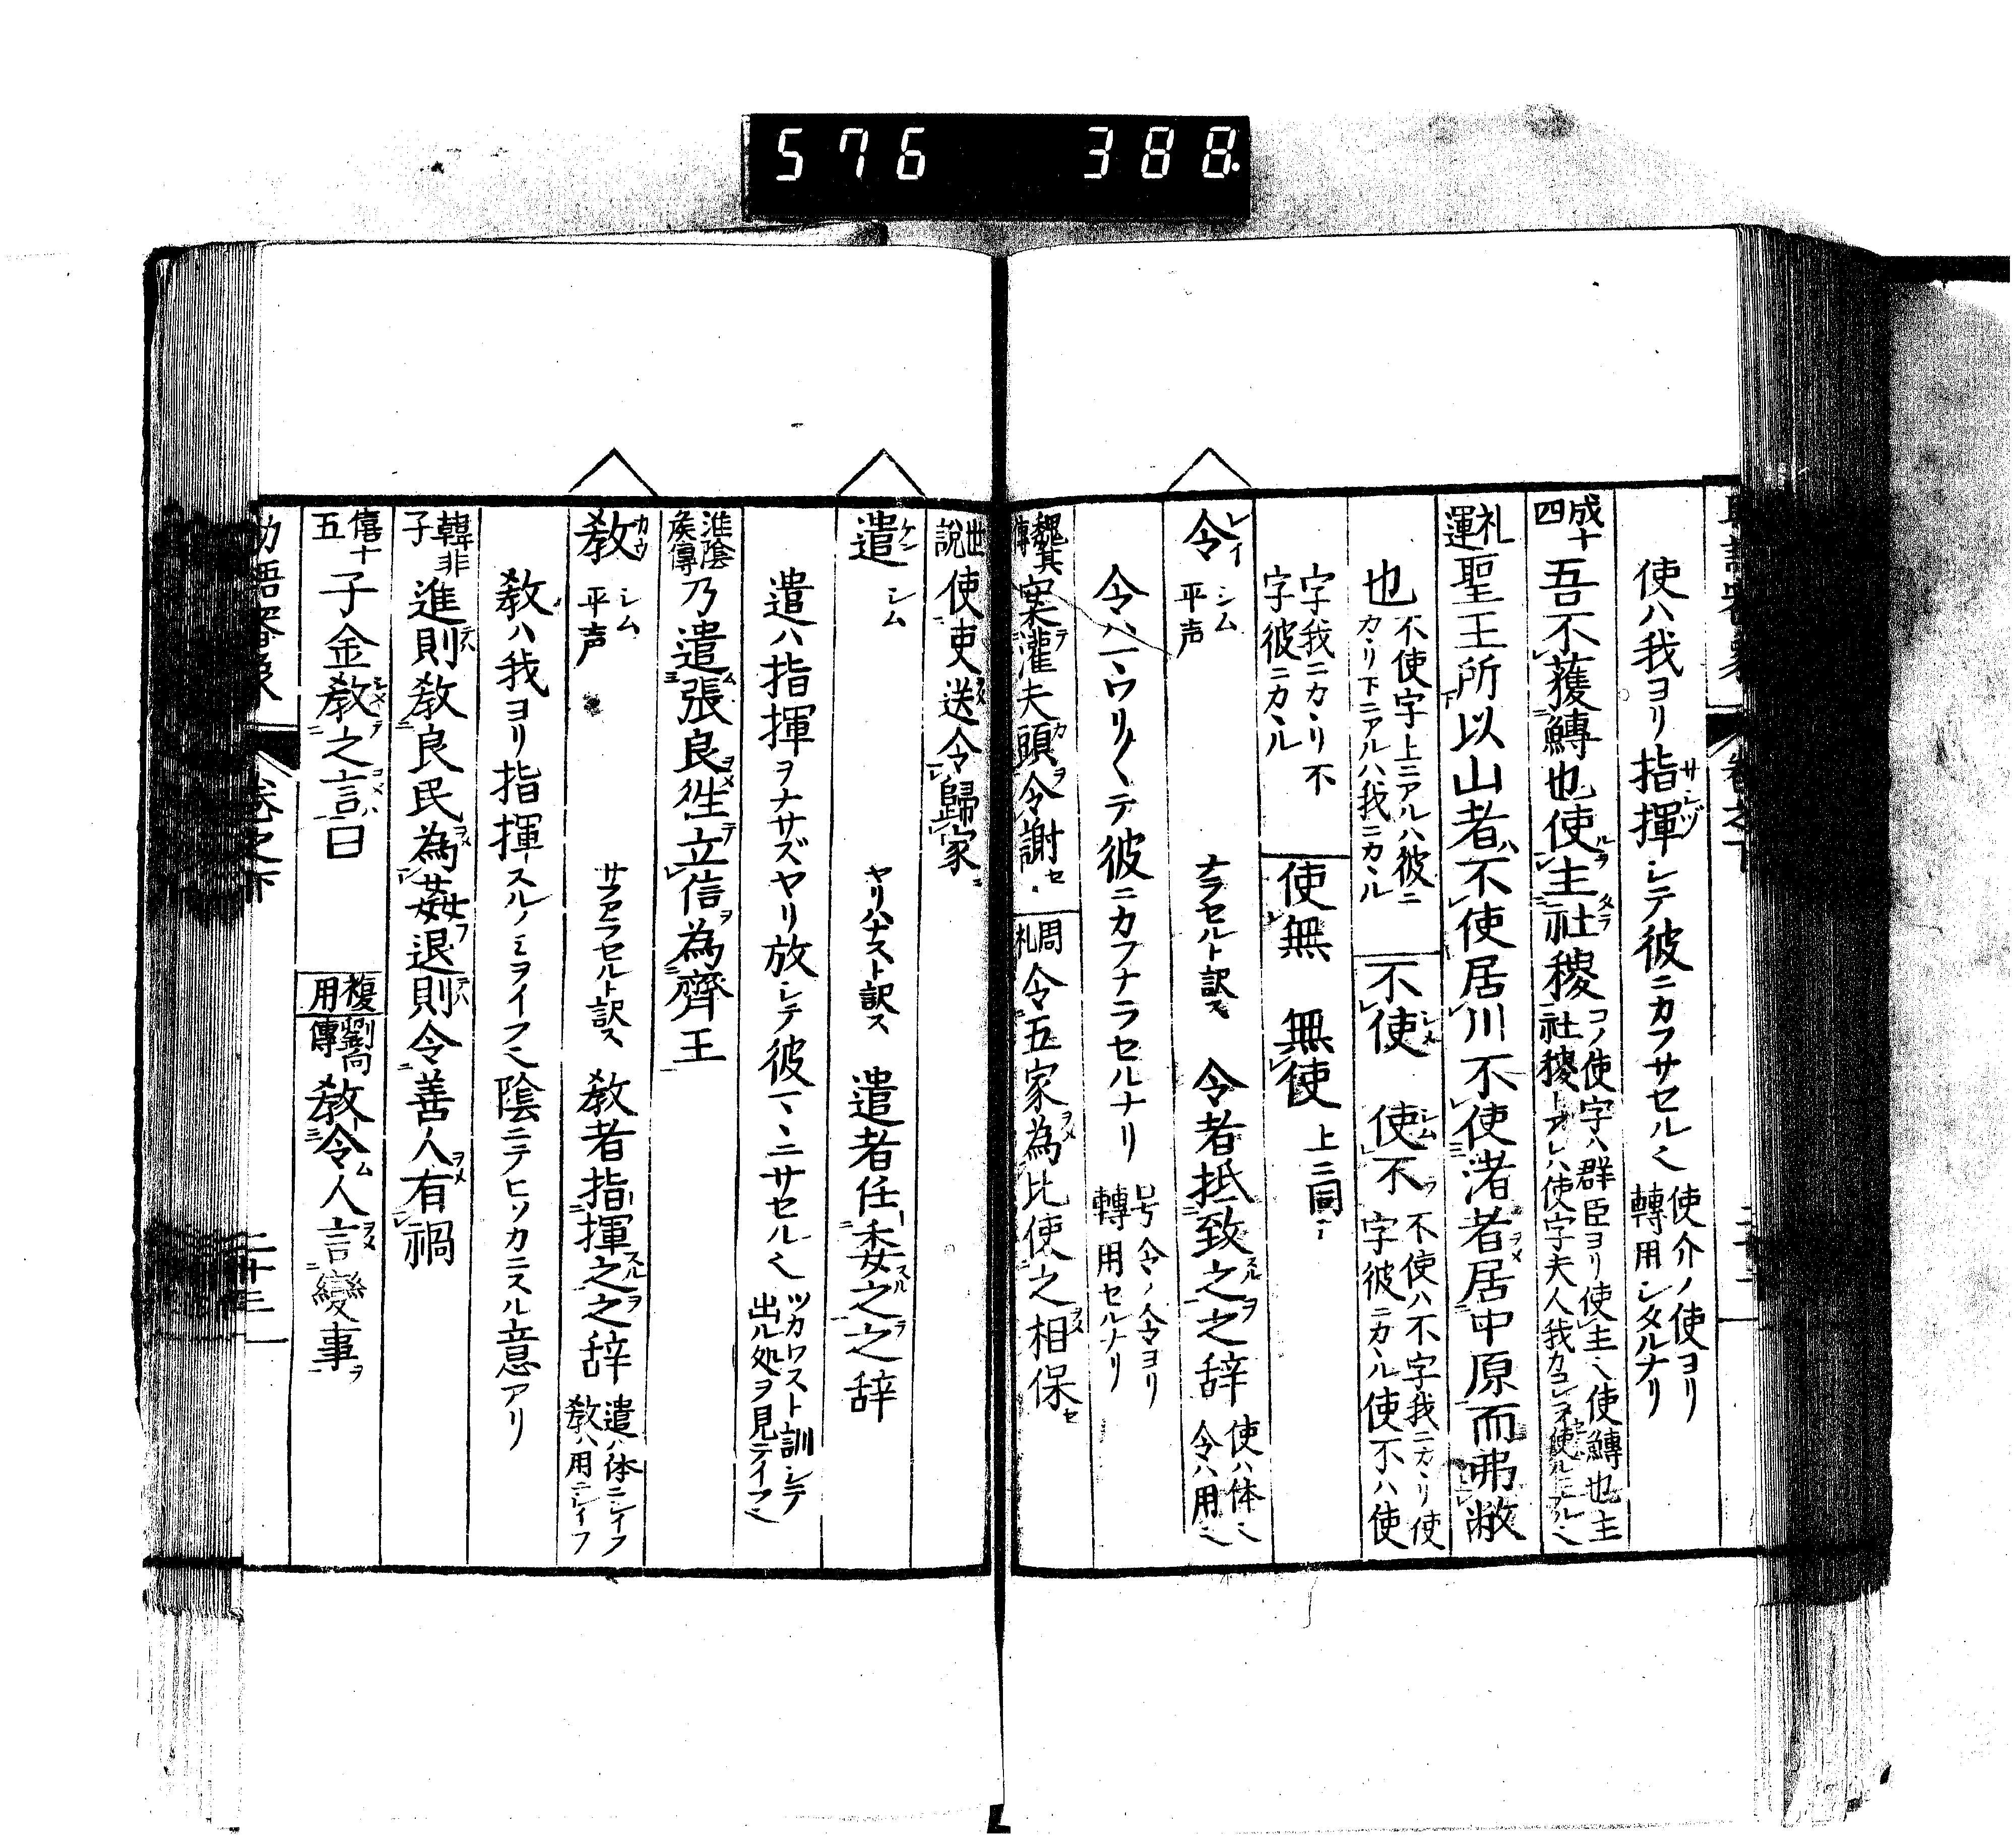 576 388
使ハ我ヨリ指揮シテ彼ニカフサセル也 使介ノ使ヨリ轉用シタルナリ
成十四 吾不獲鱄也使主社稷 コノ使字ハ群臣ヨリ使主也使鱄也主社稷トアレハ使字夫人我カコレヲ使ルニナル也
礼運 聖王所以山者不使居川不使渚者居中原而弗敝
也 不使字上ニアルハ彼ニカヽリ下ニアルハ我ニカヽル 不使 使不 不使ハ不字我ニカヽリ使字彼ニカヽル使不ハ使
字我ニカヽリ不字彼ニカヽル 使無 無使 上ニ同シ
令 レイ シム 平声 ナラセルト訳ス 令者抵致之之辞 使ハ体也令ハ用也
令ハ一ウリ〱テ彼ニカフナラセルナリ 号令ノ令ヨリ轉用セルナリ
魏其傳 案灌夫頭令謝 周礼 令五家為比使之相保
世説 使吏送令歸家
遣 ケン シム ヤリハナスト訳ス 遣者任委之之辞
遣ハ指揮ヲナサズヤリ放シテ彼マヽニサセル也 ツカワスト訓シテ出ル処ヲ見テイフ也
淮陰矦傳 乃遣張良徃立信為齊王
教 カウ シム 平声 サアラセルト訳ス 教者指揮之之辞 遣ハ体ニシイフ教ハ用ニシイフ
教ハ我ヨリ指揮スルノミヲイフ也陰ニテヒソカニスル意アリ
韓非子 進則教良民為姦退則令善人有禍
僖十五 子金教之言曰 複用 劉向傳 教令人言變事
助語審象 卷之下 二十三